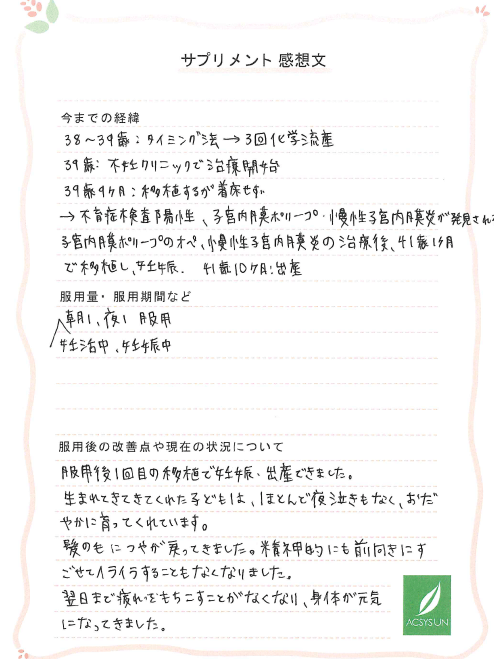 サプリメント 感想文
今までの経緯
38～39歳：タイミング法→3回化学流産
39歳：不妊クリニックで治療開始
39歳9ヶ月：移植するが着床せず
→不育症検査陽性、子宮内膜ポリープ・慢性子宮内膜炎が発見され
子宮内膜ポリープのオペ、慢性子宮内膜炎の治療後、41歳1ヶ月
で移植し、妊娠. 41歳10ヶ月：出産
服用量・服用期間など
朝1、夜1 服用
妊活中、妊娠中
服用後の改善点や現在の状況について
服用後1回目の移植で妊娠、出産できました。
生まれてきてきてくれた子どもは、ほとんど夜泣きもなく、おだ
やかに育ってくれています。
髪の毛につやが戻ってきました。精神的にも前向きにす
ごせてイライラすることもなくなりました。
翌日まで疲れをもちこすことがなくなり、身体が元気
になってきました。
ACSYSUN